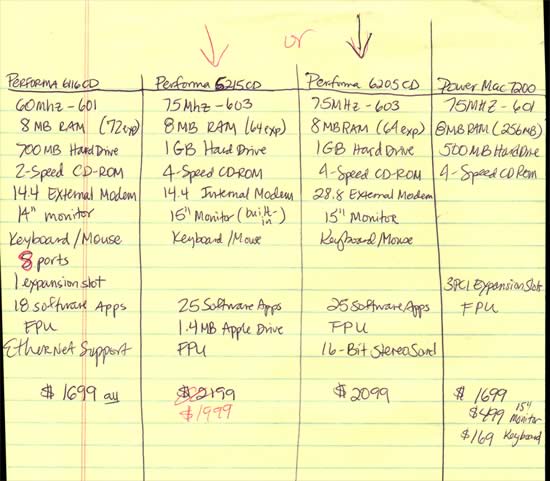 or
PERFORMA 6116CD
60Mhz-601
8MB RAM (72exp)
700MB Hard Drive
2-Speed CD-ROM
14.4 External Modem
14" monitor
Keyboard/Mouse
8 ports
1 expansion slot
18 software Apps
FPU
Ethernet Support
$1699 all
Performa 5215CD
75Mhz-603
8MB RAM (64exp)
1GB Hard Drive
4-Speed CD-ROM
14.4 Internal Modem
15" Monitor (built-in)
Keyboard/Mouse
25 Software Apps
1.4MB Apple Drive
FPU
$2199
$1999
Performa 6205CD
75MHz-603
8MB RAM (64exp)
1GB Hard Drive
4-Speed CD-ROM
28.8 External Modem
15" Monitor
Keyboard/Mouse
25 Software Apps
FPU
16-Bit Stereo Sound
$2099
Power Mac 7200
75MHz-601
8MB RAM (256MB)
500MB Hard Drive
4-Speed CD Rom
3PCI Expansion Slot
FPU
$1699
$499 15" Monitor
$169 Keyboard